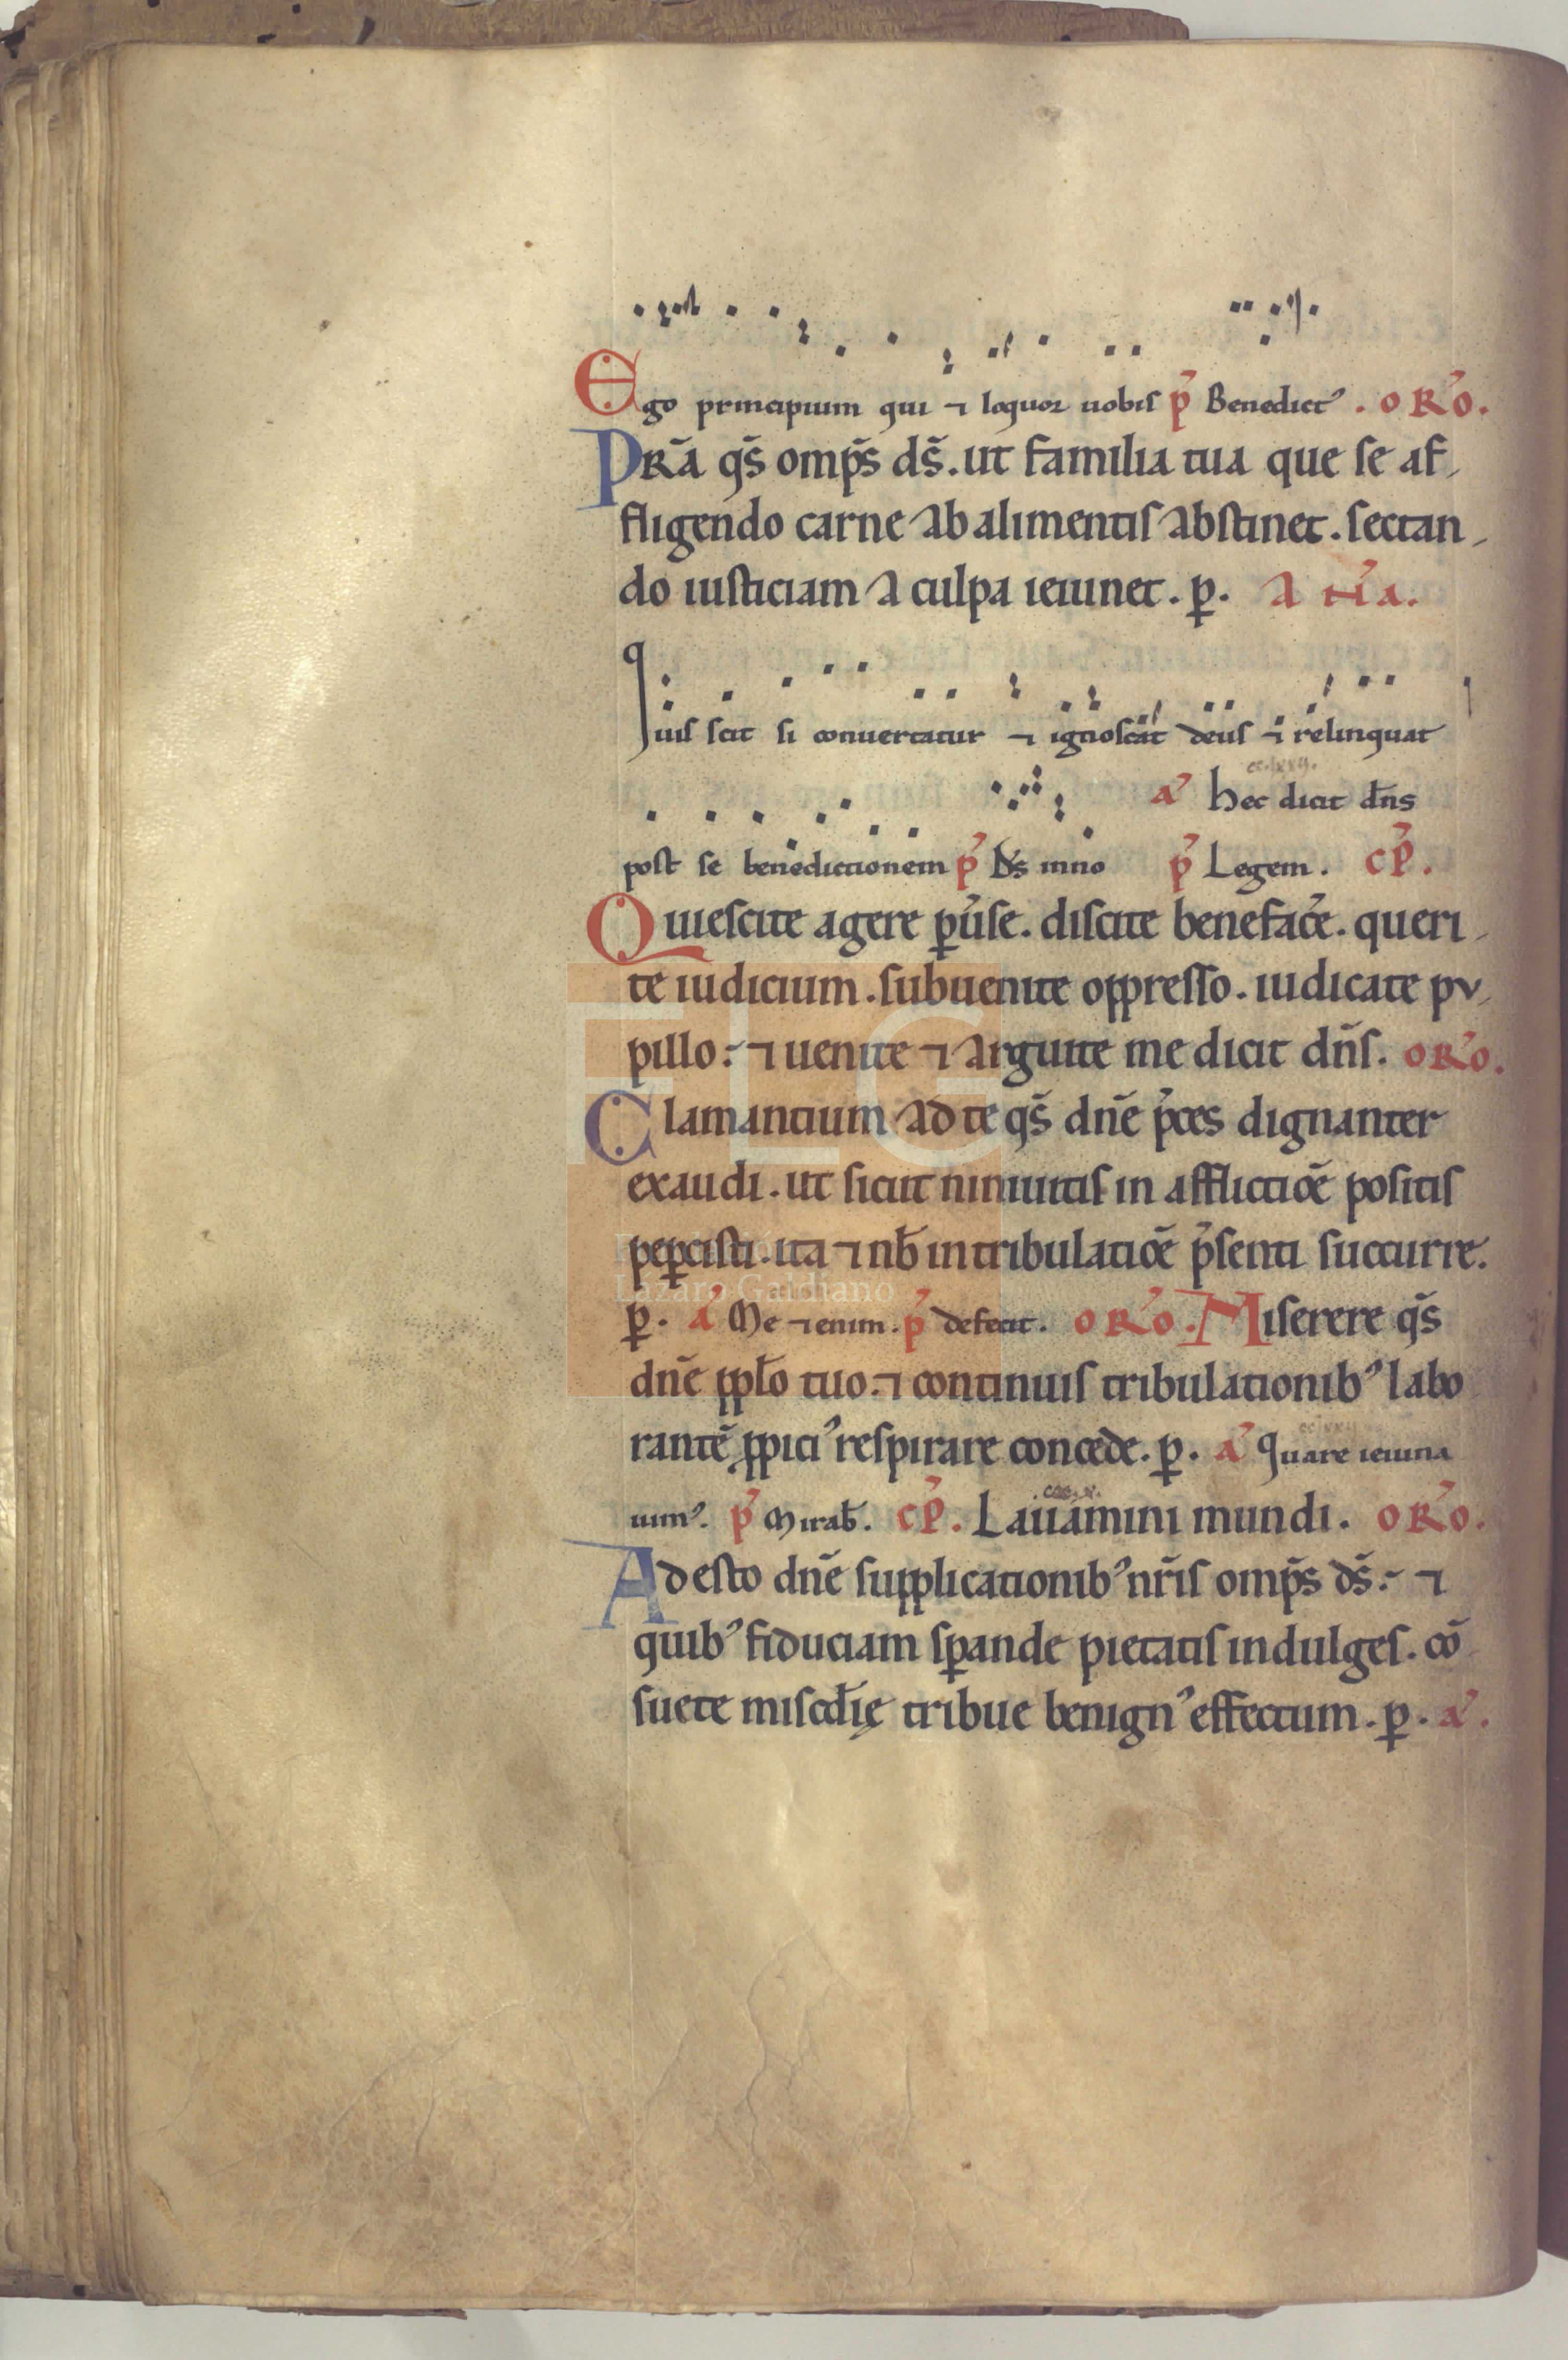 Ego principium qui ⁊ loquor uobis p̉ Benedict᾿. ORO.
PRA᷃ qs̄ omp̄s ds̄. ut familia tua que se af
fligendo carne ab alimentis abstinet. sectan
do iusticiam a culpa ieiunet. ꝑ. A Ña.
quis scit si conuertatur ⁊ ignoscat deus ⁊ relinquat
a᾿ hec dicit dn̄s
post se benedictionem p̉ Ds̄ inno p̉ Legem. CP̄.
Quiescite agere ꝑu̾se. discite benefac̾e. queri
te iudicium. subuenite oppresso. iudicate pu
pillo: ⁊ uenite ⁊ arguite me dicit dn̄s. ORO.
Clamantium ad te qs̄ dn̄e p̾ces dignanter
exaudi. ut sicut niniuitis in afflictiōe positis
peꝑcisti. ita ⁊ nb̄ in tribulatiōe p̾senti succurre.
ꝑ. a᾿ Me ⁊enim. p̉ defecit. ORO. Miserere qs̄
dn̄e pplō tuo: ⁊ continuis tribulationib᾿ labo
rantē ꝓpici᾿ respirare concede. ꝑ. a᾿ Quare ieiuna
uim᾿. p̉ Mirab̄. CP̄. Lauamini mundi. ORO.
Adesto dn̄e supplicationib᾿ nr̄is omp̄s ds̄: ⁊
quib᾿ fiduciam sꝑande pietatis indulges. cō
suete miscdīę tribue benign᾿ effectum. ꝑ. a᾿.
FLG
Lázaro Galdiano